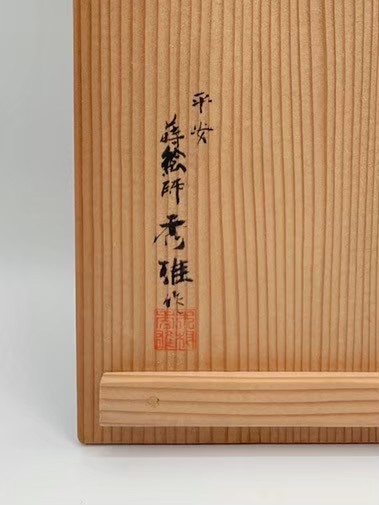 平安
蒔絵師 秀雄作